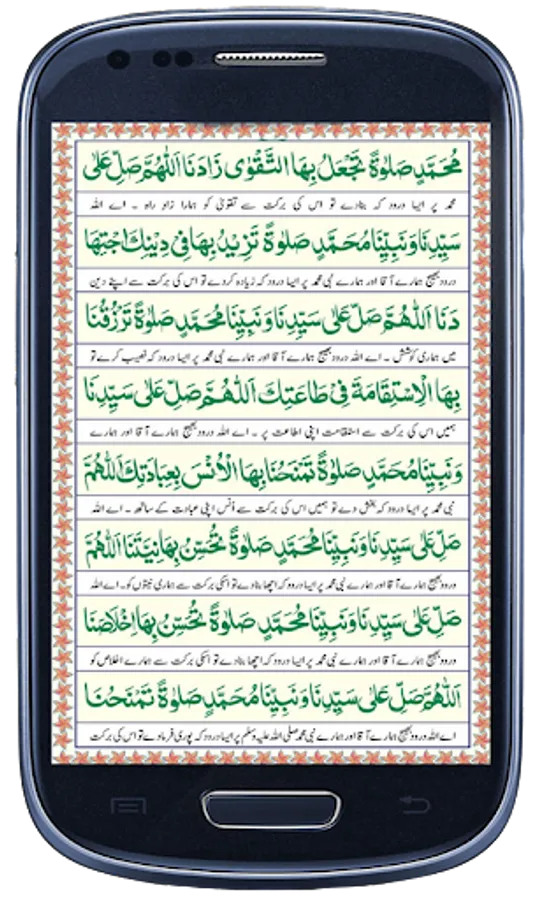 مُحَمَّدٍ صَلٰوةً تَجْعَلُ بِهَا التَّقْوٰى زَادَنَا اَللّٰهُمَّ صَلِّ عَلٰى
محمد پر ایسا درود کہ بنادے تو اس کی برکت سے تقویٰ کو ہمارا زاد راہ ۔ اے اللہ
سَيِّدِنَا وَنَبِيِّنَا مُحَمَّدٍ صَلٰوةً تَزِيْدُ بِهَا فِىْ دِيْنِكَ اجْتِهَا
درود بھیج ہمارے آقا اور ہمارے نبی محمد پر ایسا درود کہ زیادہ کردے تو اس کی برکت سے اپنے دین
دَنَا اَللّٰهُمَّ صَلِّ عَلٰى سَيِّدِنَا وَنَبِيِّنَا مُحَمَّدٍ صَلٰوةً تَرْزُقُنَا
میں ہماری کوشش ۔ اے اللہ درود بھیج ہمارے آقا اور ہمارے نبی محمد پر ایسا درود کہ نصیب کرے تو
بِهَا الْاِسْتِقَامَةَ فِىْ طَاعَتِكَ اَللّٰهُمَّ صَلِّ عَلٰى سَيِّدِنَا
ہمیں اس کی برکت سے استقامت اپنی اطاعت پر ۔ اے اللہ درود بھیج ہمارے آقا اور ہمارے
وَنَبِيِّنَا مُحَمَّدٍ صَلٰوةً تَمْنَحُنَا بِهَا الْاُنْسَ بِعِبَادَتِكَ اَللّٰهُمَّ
نبی محمد پر ایسا درود کہ بخش دے تو ہمیں اس کی برکت سے اُنس اپنی عبادت کے ساتھ ۔ اے اللہ
صَلِّ عَلٰى سَيِّدِنَا وَنَبِيِّنَا مُحَمَّدٍ صَلٰوةً تُحَسِّنُ بِهَا نِيَّتَنَا اَللّٰهُمَّ
درود بھیج ہمارے آقا اور ہمارے نبی محمد پر ایسا درود کہ اچھا بنادے تو اسکی برکت سے ہماری نیتوں کو۔ اے اللہ
صَلِّ عَلٰى سَيِّدِنَا وَنَبِيِّنَا مُحَمَّدٍ صَلٰوةً تُحَسِّنُ بِهَا اِخْلَاصَنَا
درود بھیج ہمارے آقا اور ہمارے نبی محمد پر ایسا درود کہ اچھا بنادے تو اسکی برکت سے ہمارے اخلاص کو
اَللّٰهُمَّ صَلِّ عَلٰى سَيِّدِنَا وَنَبِيِّنَا مُحَمَّدٍ صَلٰوةً تَمْنَحُنَا
اے اللہ درود بھیج ہمارے آقا اور ہمارے نبی محمد صلی اللہ علیہ وسلم پر ایسا درود کہ پوری فرمادے تو اس کی برکت